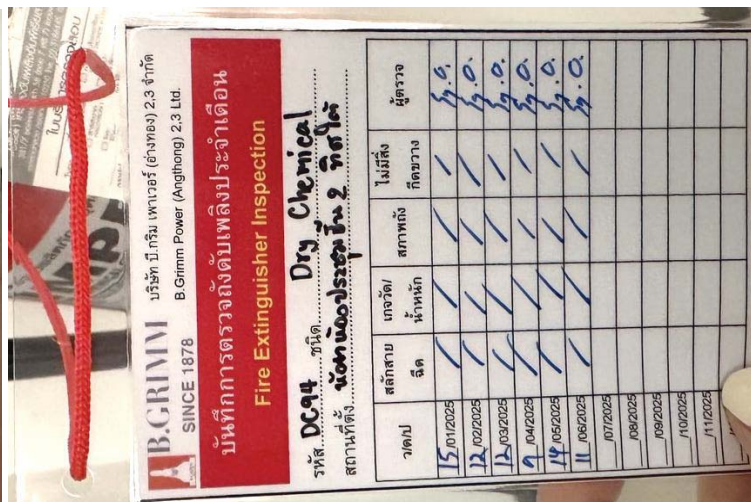 B.GRIMM
SINCE 1878
บริษัท บี.กริม เพาเวอร์ (อ่างทอง) 2,3 จำกัด
B.Grimm Power (Angthong) 2,3 Ltd.
บันทึกการตรวจถังดับเพลิงประจำเดือน
Fire Extinguisher Inspection
รหัส DC94 ชนิด Dry Chemical
สถานที่ตั้ง หน้าห้องประชุมชั้น 2 ทิศใต้
ว/ด/ป สลักสาย ฉีด เกจวัด/ น้ำหนัก สภาพถัง ไม่มีสิ่ง กีดขวาง ผู้ตรวจ
15/01/2025 / / / /
12/02/2025 / / / /
12/03/2025 / / / /
9/04/2025 / / / /
14/05/2025 / / / /
11/06/2025 / / / /
/07/2025
/08/2025
/09/2025
/10/2025
/11/2025